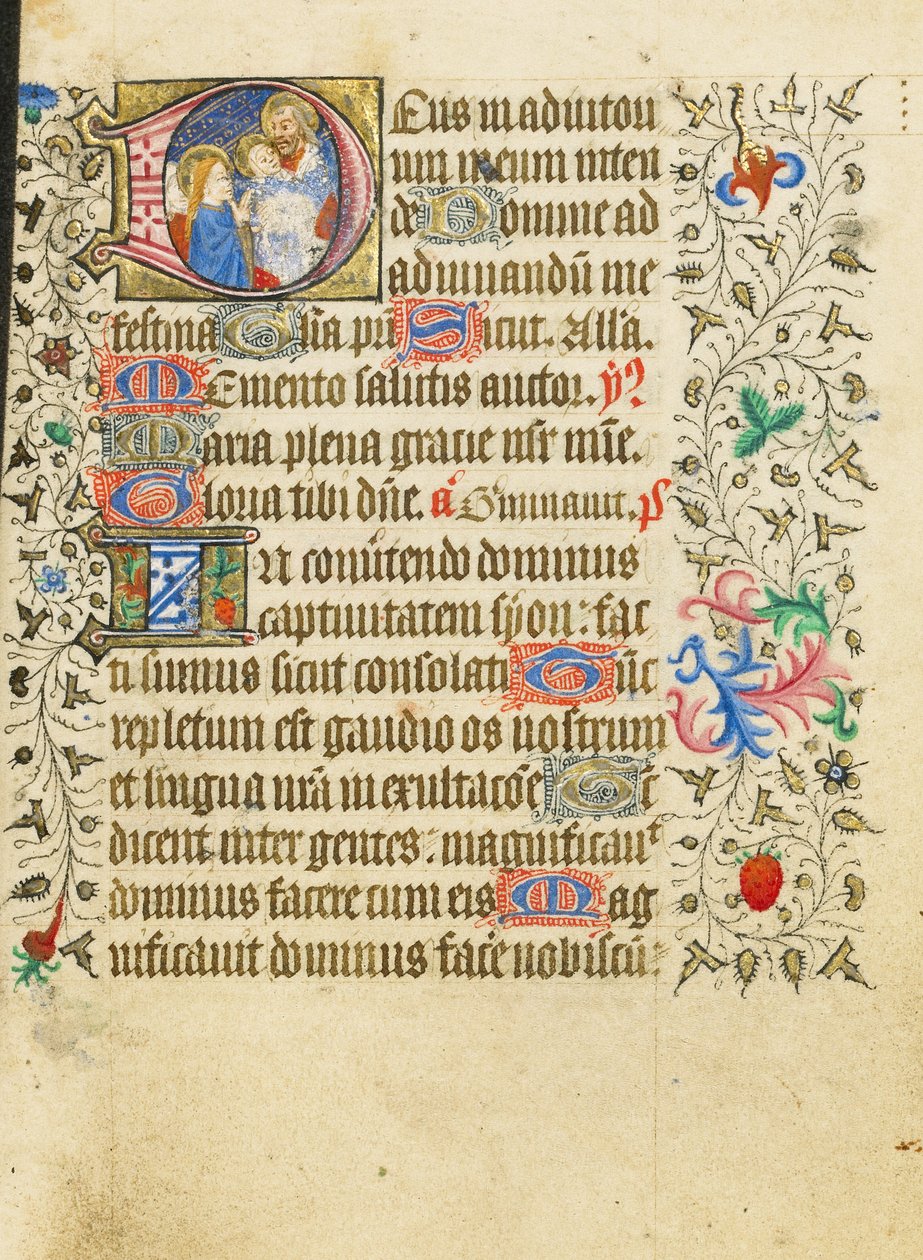 Deus in adiutori
um meum inten
de Domine ad
adiuuandū me
festina Glīa pīi Sicut. Allā.
Memento salutis auctor. ỹ
Maria plena gracie nr̄ mīe.
Gloria tibi dn̄e. ā Germinauit. ps
In conūtendo dominus
captiuitatem syon: fac
ti sumus sicut consolati Tūc
repletum est gaudio os nostrum
et lingua nr̄a in exultacōe Tc
dicent inter gentes: magnificauᵗ
dominus facere cum eis Mag
nificauit dominus fac̄e nobiscū: